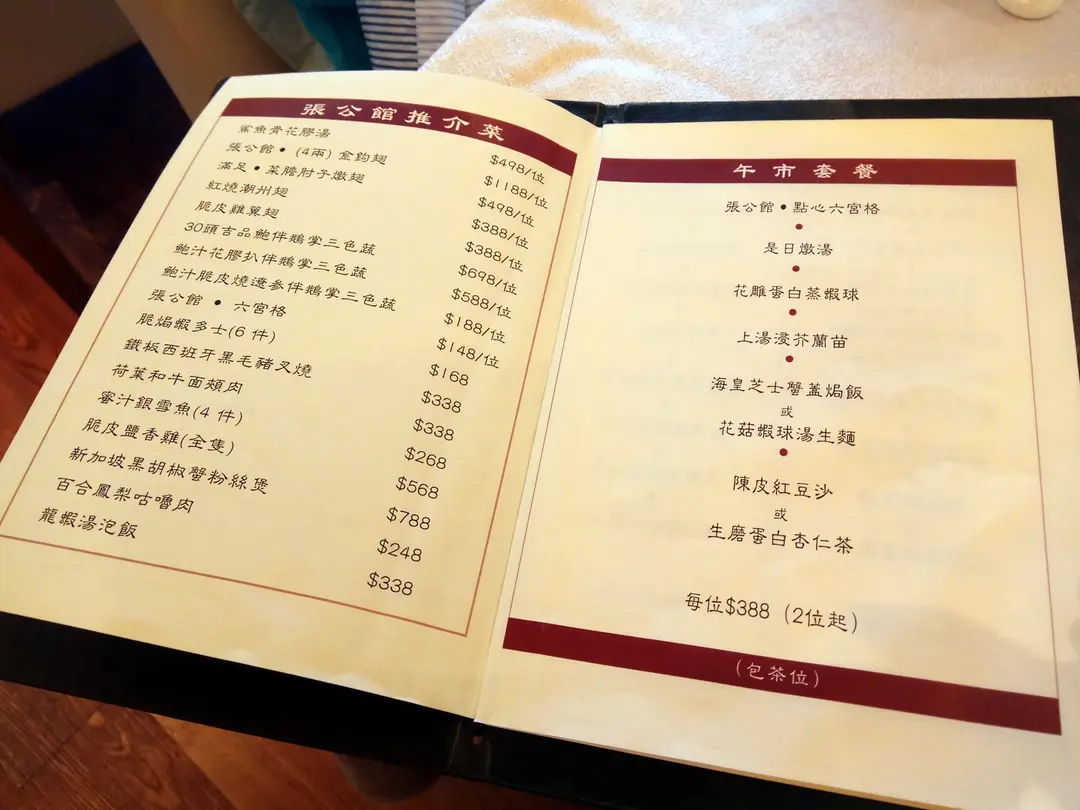 張公館推介菜
鯊魚骨花膠湯 $498/位
張公館•(4兩)金鈎翅 $1188/位
滿足•菜膽肘子燉翅 $498/位
紅燒潮州翅 $388/位
脆皮雞翼翅 $388/位
30頭吉品鮑伴鵝掌三色蔬 $698/位
鮑汁花膠扒伴鵝掌三色蔬 $588/位
鮑汁脆皮燒遼參伴鵝掌三色蔬 $188/位
張公館 • 六宮格 $148/位
脆焗蝦多士(6 件) $168
鐵板西班牙黑毛豬叉燒 $338
荷葉和牛面頰肉 $338
蜜汁銀雪魚(4 件) $268
脆皮鹽香雞(全隻) $568
新加坡黑胡椒蟹粉絲煲 $788
百合鳳梨咕嚕肉 $248
龍蝦湯泡飯 $338
午市套餐
張公館•點心六宮格
是日燉湯
花雕蛋白蒸蝦球
上湯浸芥蘭苗
海皇芝士蟹蓋焗飯
或
花菇蝦球湯生麵
陳皮紅豆沙
或
生磨蛋白杏仁茶
每位$388 (2位起)
(包茶位)